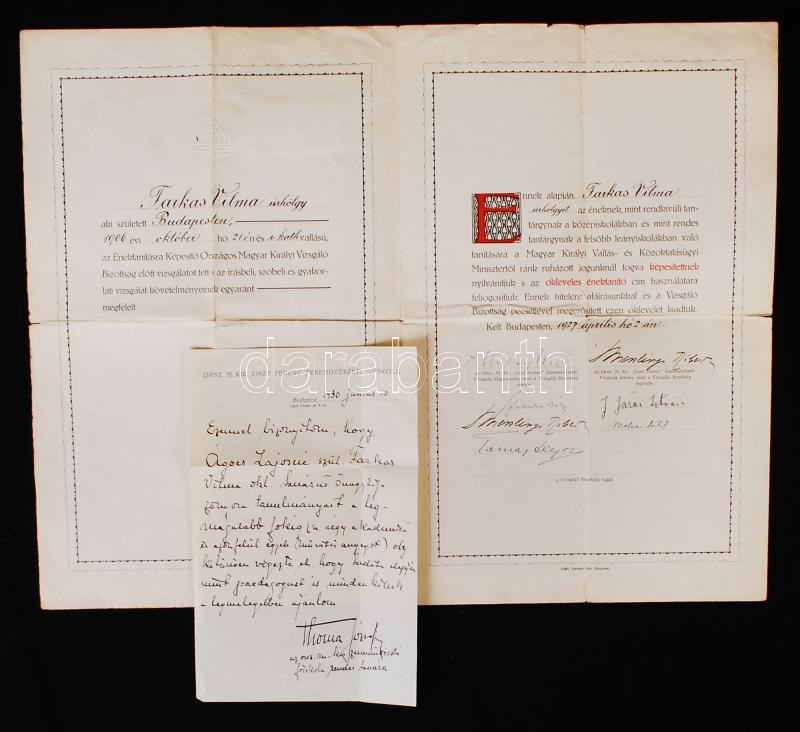 Farkas Vilma úrhölgy
aki született Budapesten,
1906 évi október hó 21 én és r. kath vallású,
az Énektanításra Képesítő Országos Magyar Királyi Vizsgáló
Bizottság előtt vizsgálatot tett s az írásbeli, szóbeli és gyakor-
lati vizsgálat követelményeinek egyaránt
megfelelt.
Ennek alapján Farkas Vilma
úrhölgyet az éneknek, mint rendkívüli tan-
tárgynak a középiskolákban és mint rendes
tantárgynak a felsőbb leányiskolákban való
tanítására a Magyar Királyi Vallás- és Közoktatásügyi
Minisztertől ránk ruházott jogunknál fogva képesítettnek
nyilvánítjuk s az okleveles énektanító cím használatára
feljogosítjuk. Ennek hitelére aláírásunkkal és a Vizsgáló
Bizottság pecsétjével megerősített ezen oklevelet kiadtuk.
Kelt Budapesten, 1927 április hó 2 án.
a Vizsgáló Bizottság tagjai.
darabanth.com
ORSZ. M. KIR. LISZT FERENC ZENEMŰVÉSZETI FŐISKOLA
Budapest, 1930 junius 10.
Ezennel bizonyítom, hogy
Ágocs Lajosné szül. Farkas
Vilma okl. tanárnő
tanulmányait a leg-
magasabb fokig (a négy akadémiai
és azonfelül egyéb
kitünően végezte el, hogy tudása alapján
mint paedagogust is mindenkinek
a legmelegebben ajánlom
Thoma József
főiskola rendes tanára